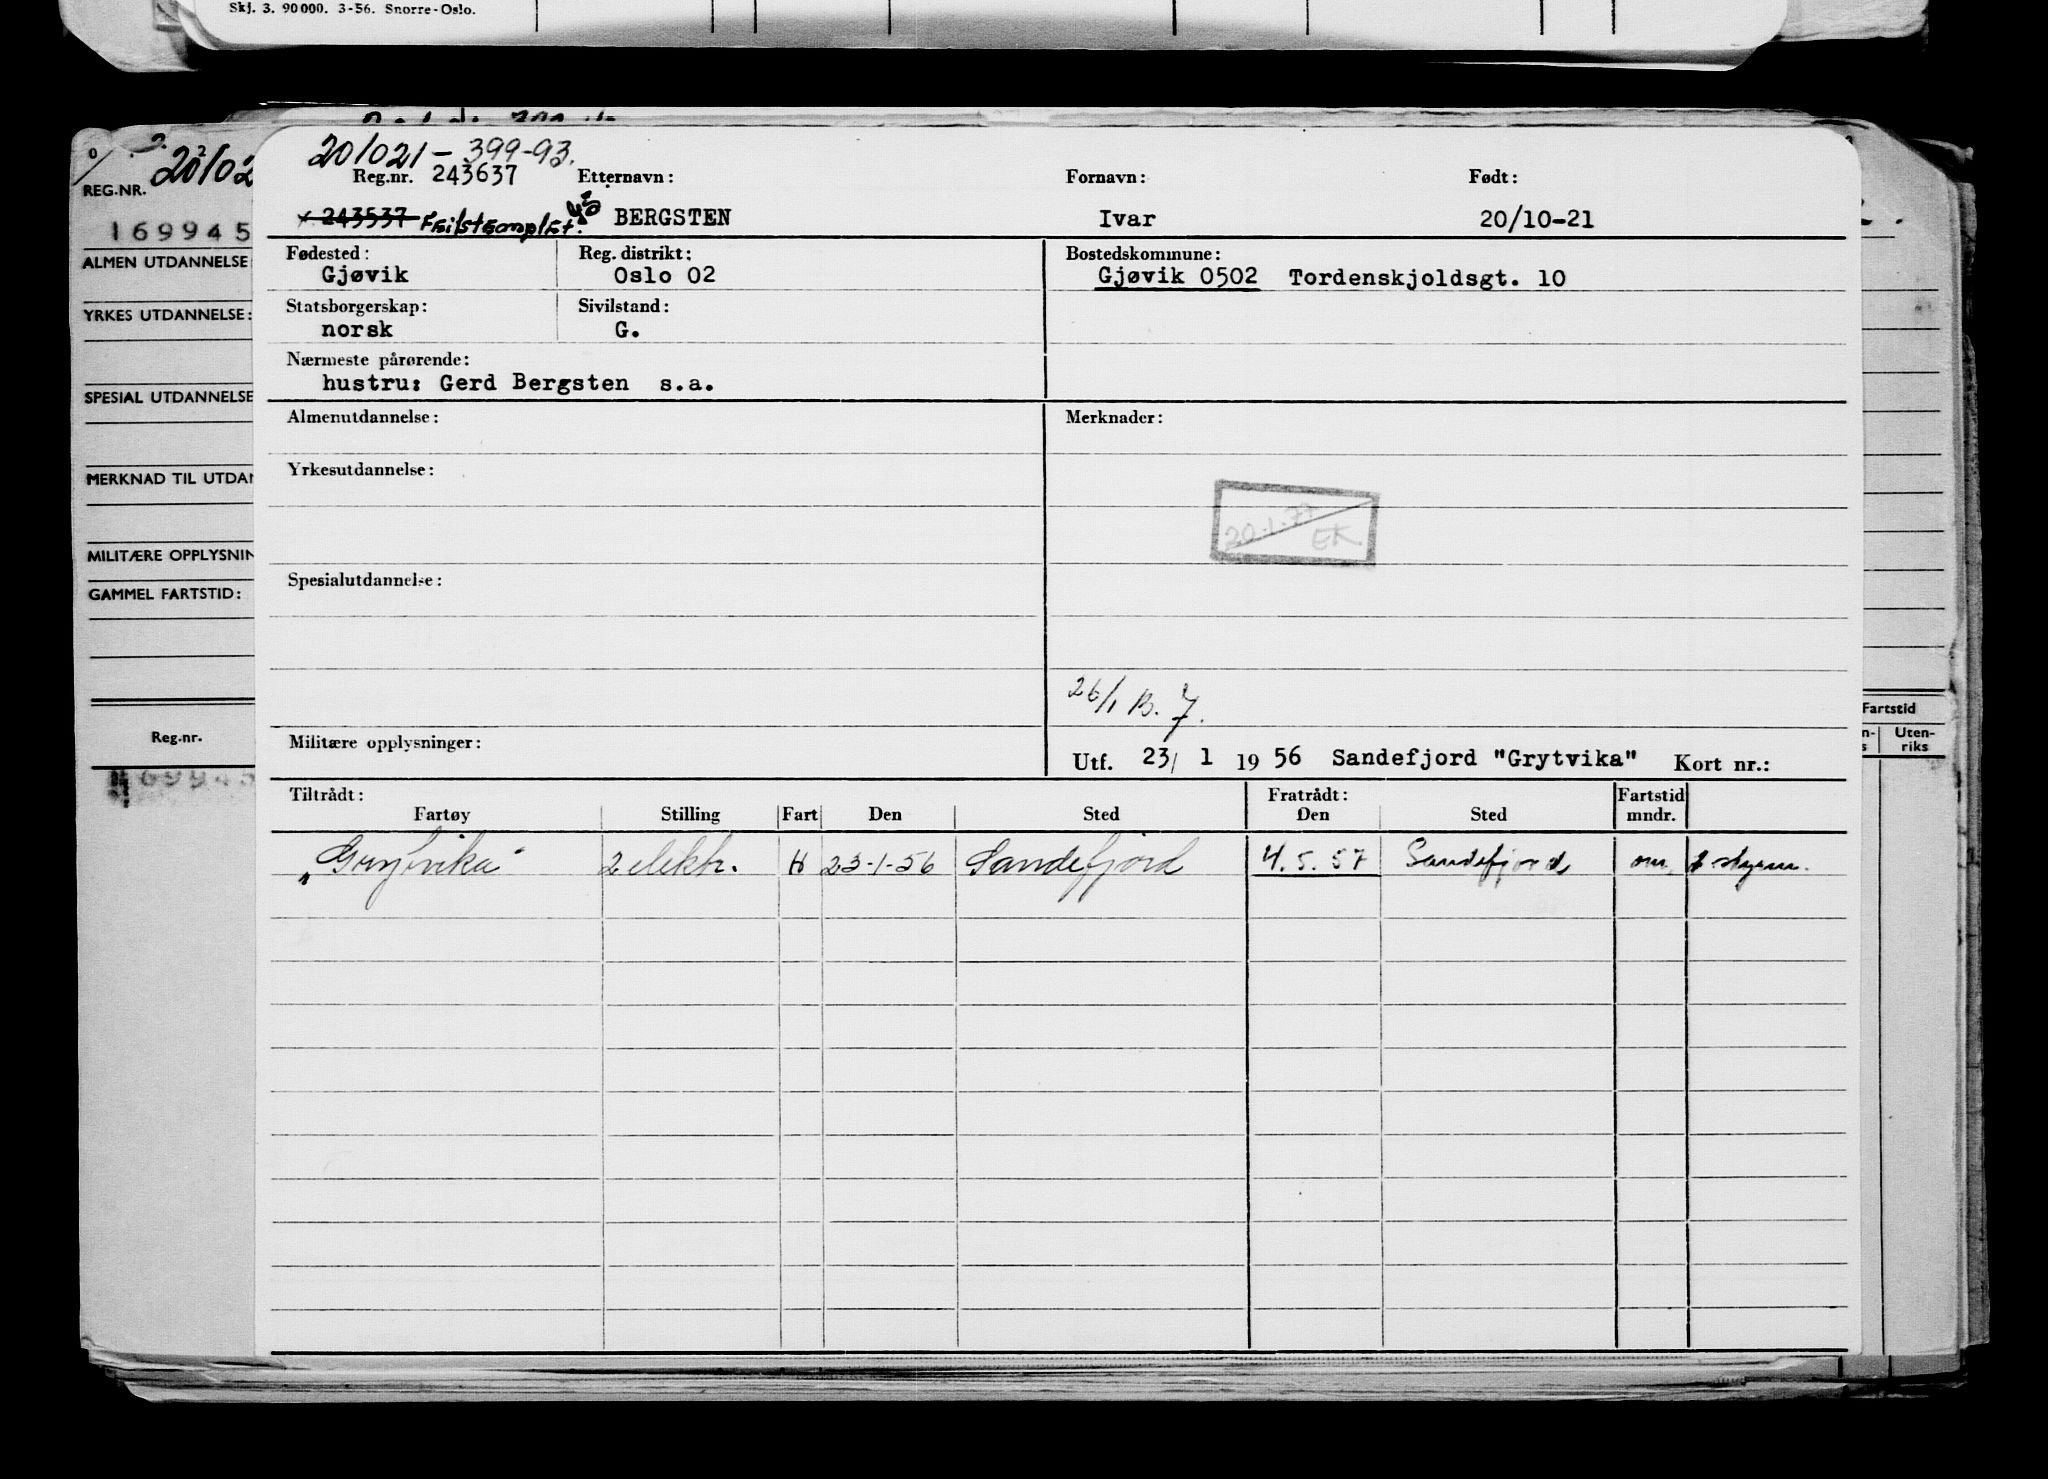 Skj. 3. 90 000. 3-56. Snorre-Oslo.
201021-399-93.
Reg.nr. 243637 Etternavn: Fornavn: Født:
243537 Feilstemplet. BERGSTEN Ivar 20/10-21
Fødested: Reg. distrikt: Bostedskommune:
Gjøvik Oslo 02 Gjøvik 0502 Tordenskjoldsgt. 10
Statsborgerskap: Sivilstand:
norsk G.
Nærmeste pårørende:
hustru: Gerd Bergsten s.a.
Almenutdannelse: Merknader:
Yrkesutdannelse:
20.1.77
EK.
Spesialutdannelse:
26/1 B. 7.
Militære opplysninger: Utf. 23/ 1 19 56 Sandefjord "Grytvika" Kort nr.:
Tiltrådt: Fratrådt: Fartstid
Fartøy Stilling Fart Den Sted Den Sted mndr.
„Grytvika" 2 elektr. H 23-1-56 Sandefjord 4.5.57 Sandefjord
REG.NR. 20/02
169945
ALMEN UTDANNELSE
YRKES UTDANNELSE:
SPESIAL UTDANNELSE
MERKNAD TIL UTDAN
MILITÆRE OPPLYSNIN
GAMMEL FARTSTID:
Reg.nr.
169945
Fartstid
Uten-
riks